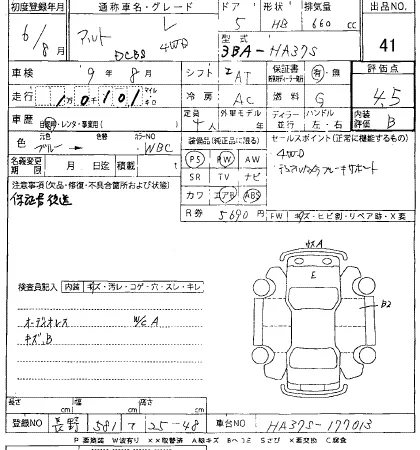 初度登録年月 通称車名・グレード ドア 形状 排気量 出品NO.
6/8月 アルト L DCBS 4WD 5 HB 660 cc
型式 3BA-HA37S 41
車検 9年8月 シフト AT 保証書 有・無 評価点
走行 1万0千101 マイル キロ 冷房 AC 燃料 G 4.5
車歴 自家・レンタ・事業用( ) 定員 4人 外車モデル ディーラー 並行 ハンドル 左・右 内装評価 B
色 ブルー→ 色替 カラーNO WBC 装備品(純正品に限る) セールスポイント(正常に機能するもの)
名義変更期限 月 日迄 積載 t PS PW AW 4WD
注意事項(欠品・修復・不具合箇所および状態) SR TV ナビ デュアルカメラブレーキサポート
保証書後送 カワ エアB ABS
R券 5690円 FW キズ・ヒビ割・リペア跡・X要
検査員記入 内装 キズ・汚レ・コゲ・穴・スレ・キレ
オーディオレス W/C A
キズ、B
キズA
E
B2
長さ cm 幅 cm 高さ cm
登録NO 長野 581 て 25-48 車台NO HA37S-177013
P要塗装 W波有り ××取替済 A線キズ Bヘコミ Sさび ×要交換 C腐食